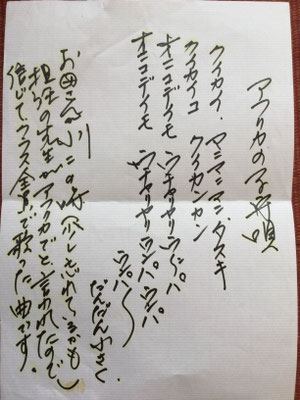 アフリカの子守唄
クイカイ、マニマニマニ、ダスキ
クイカイコ クイカンカン
オニコデイモ ウチャリヤリ ウンパ
オニコデイモ ウチャリヤリ ウンパ ウンパ
ウンパ〜
だんだん小さく
お母さん 小二の時 少し忘れているかも
担任の先生がアフリカでと言われたので
信じてクラス全員で歌った曲です。